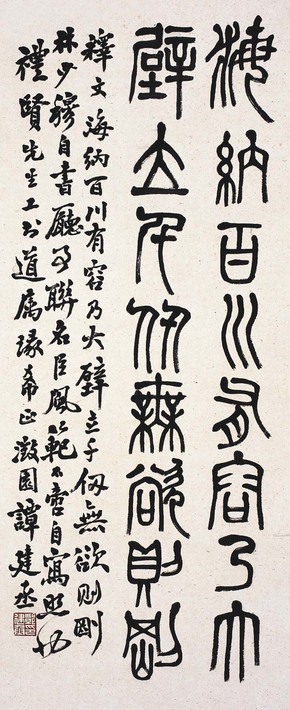 海納百川有容乃大
壁立千仞無欲則剛
釋文海納百川有容乃大壁立千仞無欲則剛
林少穆自書廳事聯名臣風範不啻自寫照也
禮賢先生工道属希正澂園譚建丞